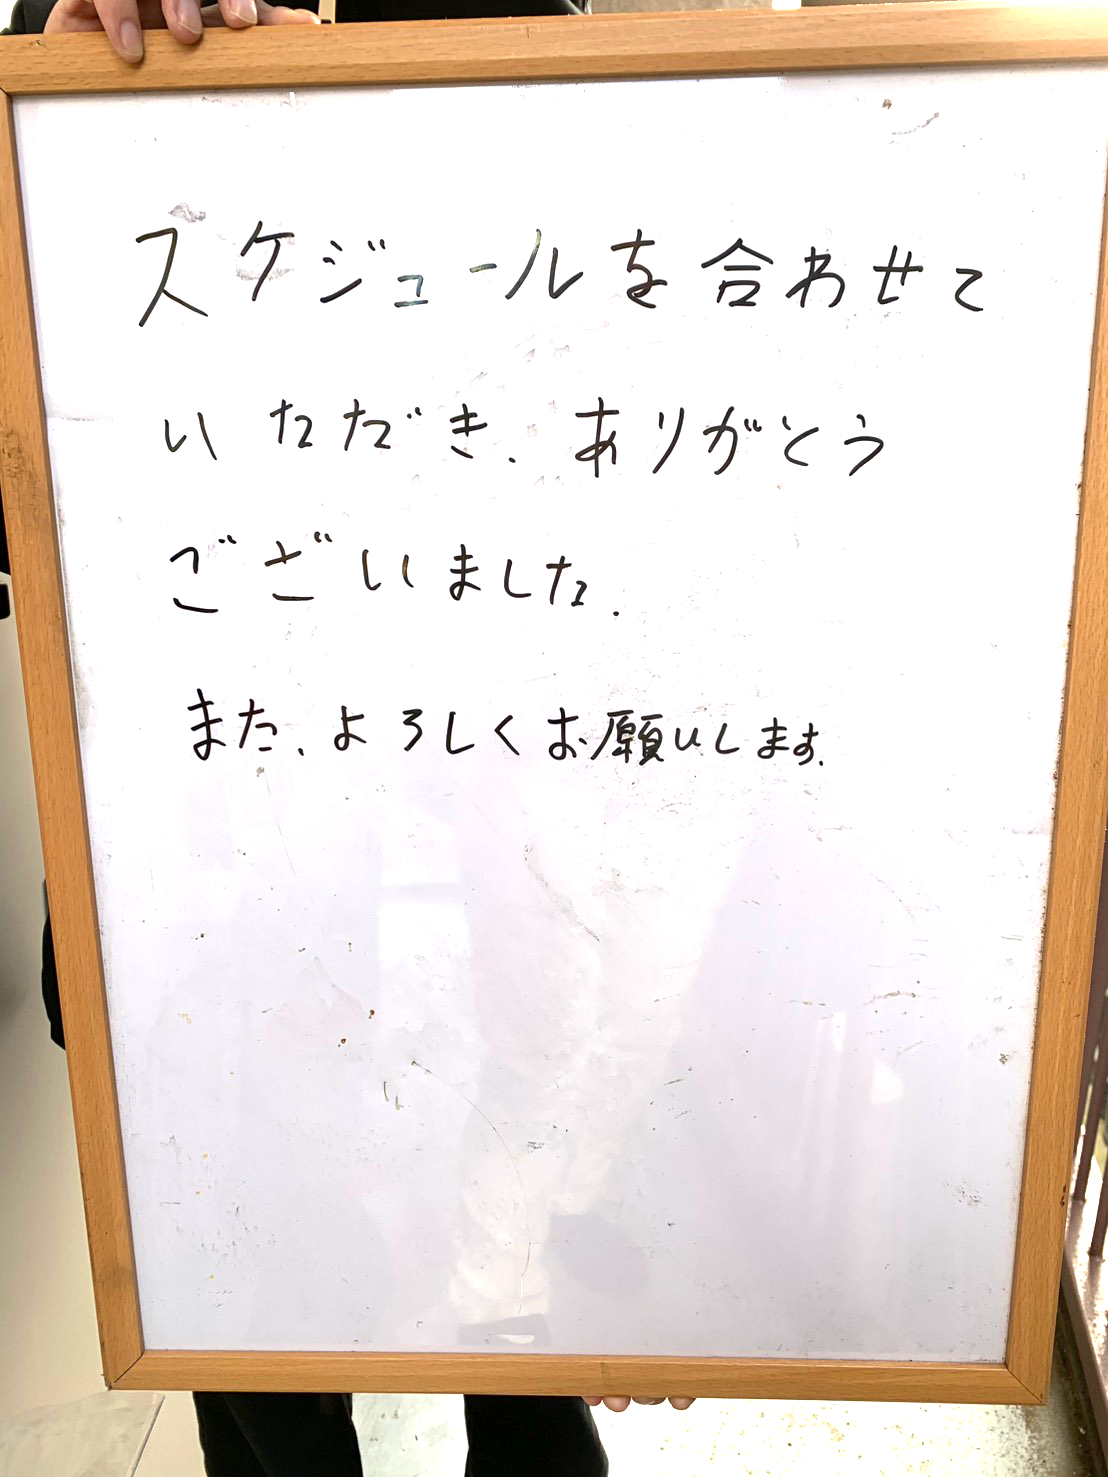 スケジュールを合わせて
いただき、ありがとう
ございました。
また、よろしくお願いします。